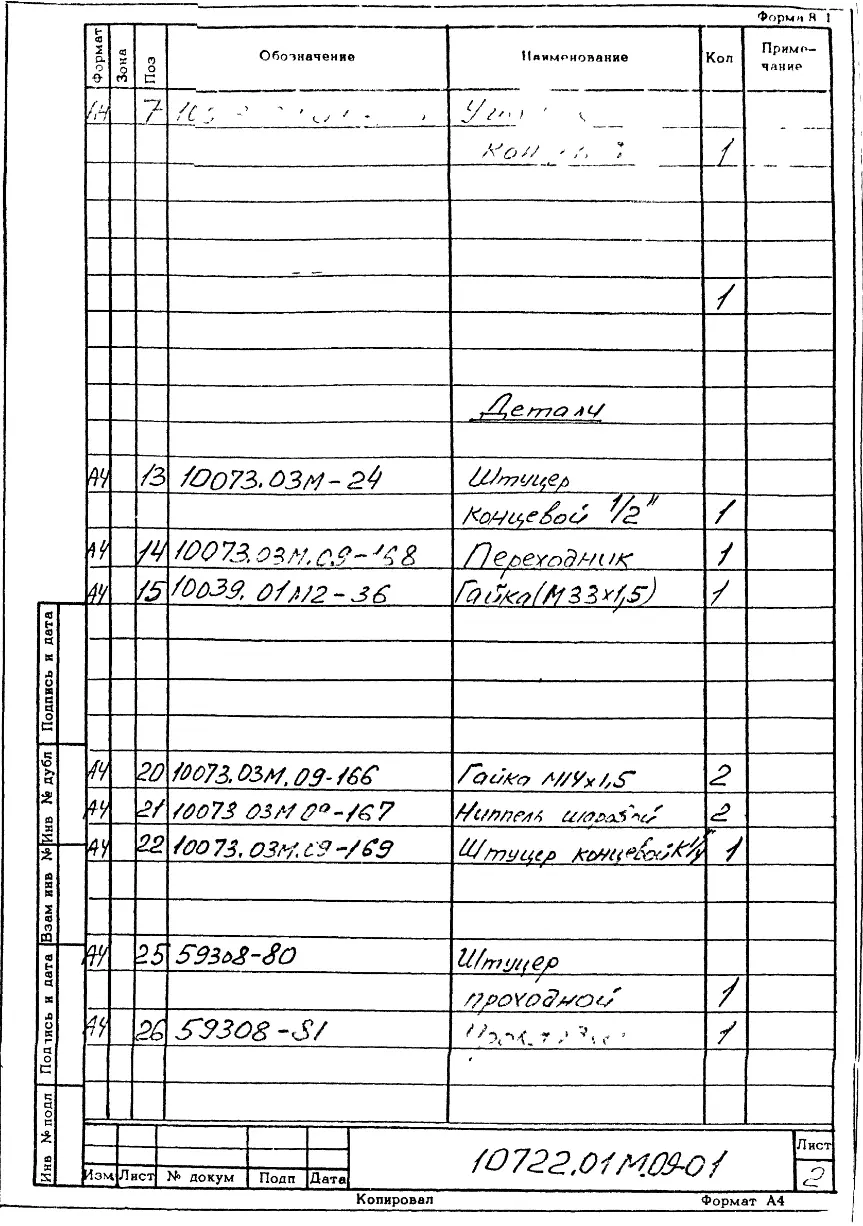 Форма 8 1
Формат Зона Поз Обозначение Наименование Кол Приме-
чание
7
1
1
Детали
А4 13 10073.03М-24 Штуцер
концевой 1/2" 1
А4 14 10073.03М.09-168 Переходник 1
А4 15 10039.01М2-36 Гайка(М33х1,5) 1
А4 20 10073.03М.09-166 Гайка М14х1,5 2
А4 21 10073 03М 09-167 Ниппель шаровый 2
А4 22 10073.03М.09-169 Штуцер концевой К1/4" 1
А4 25 59308-80 Штуцер
проходной 1
А4 26 59308-81 1
Подпись и дата
Инв № дубл
Взам инв №
Подпись и дата
Инв № подл
10722.01М.09-01
Лист
2
Изм Лист № докум Подп Дата
Копировал Формат А4